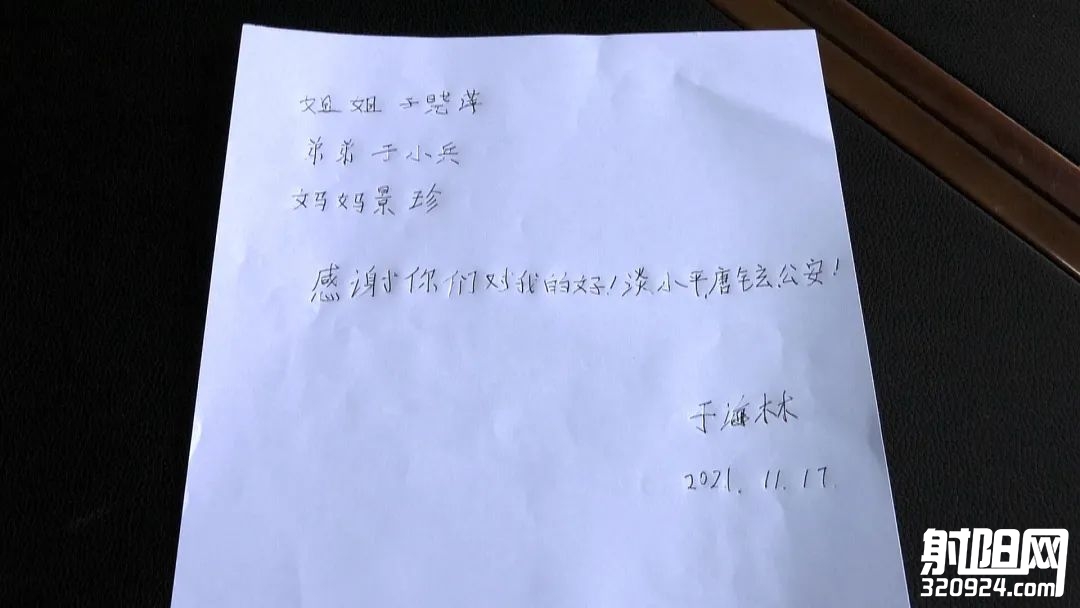 姐姐于晃萍
弟弟于小兵
妈妈景珍
感谢你们对我的好!淡小平,唐铉,公安!
于海林
2021.11.17.
射阳网
320924.com